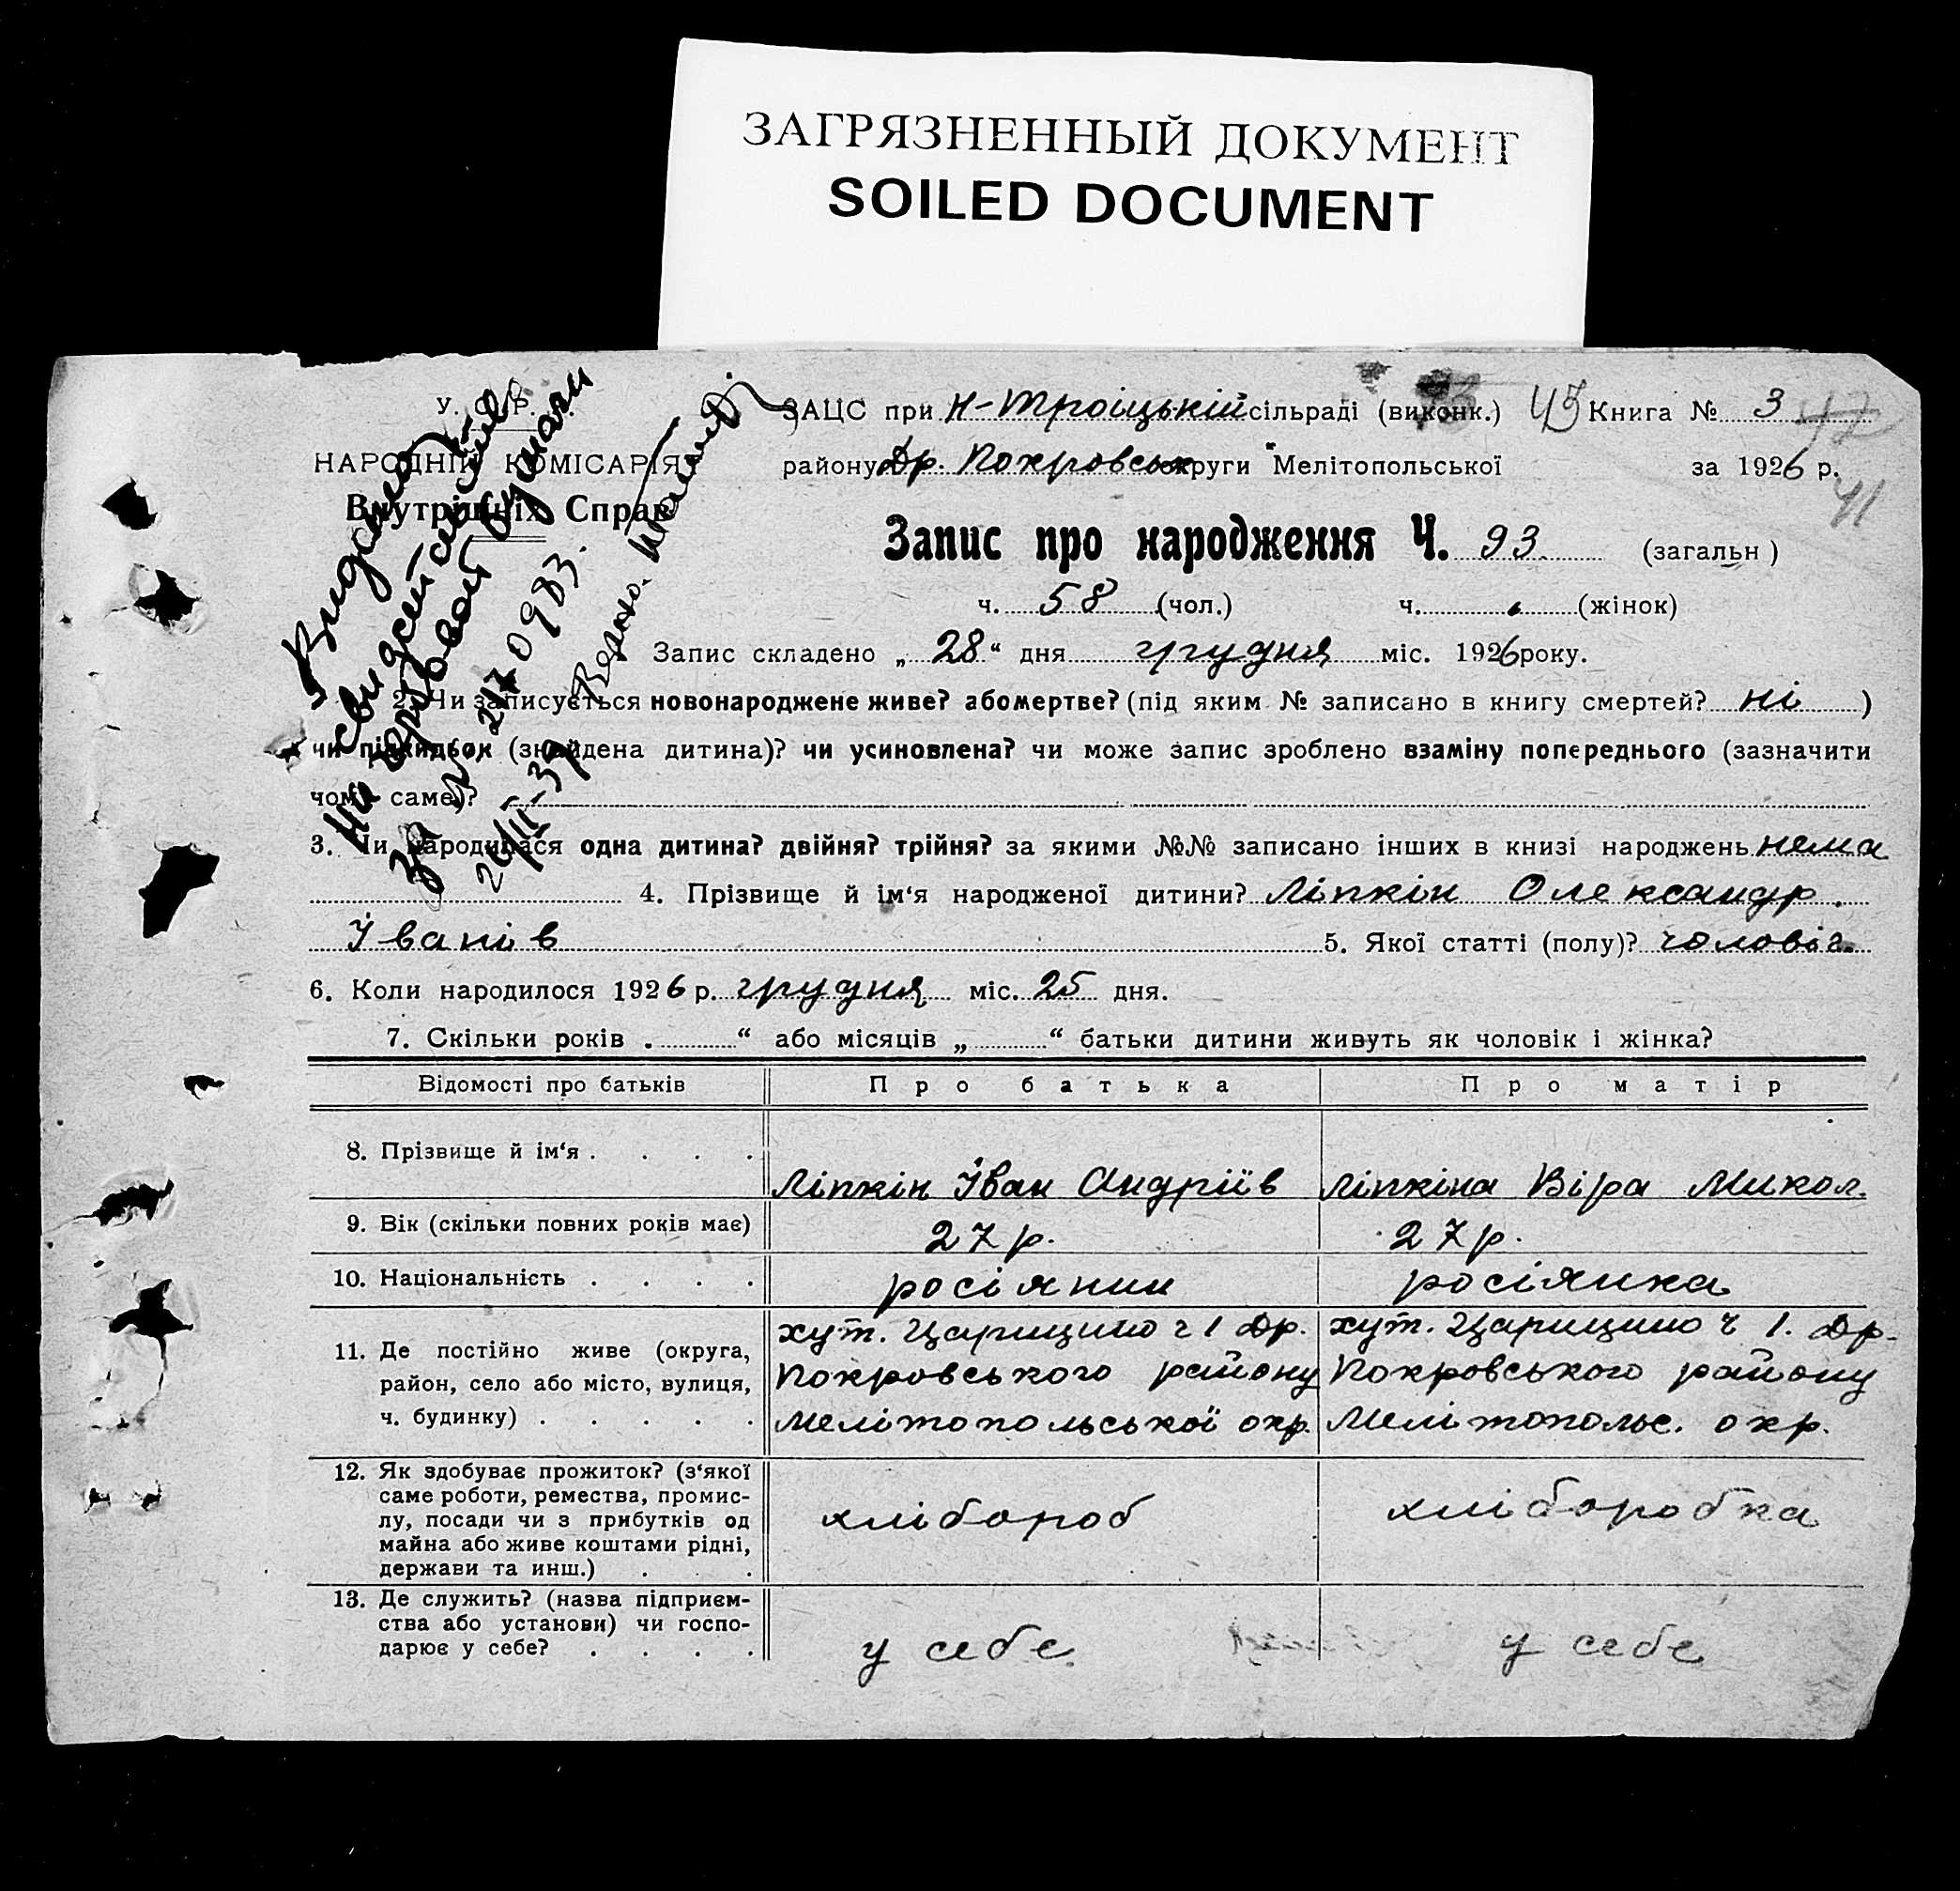 ЗАГРЯЗНЕННЫЙ ДОКУМЕНТ
SOILED DOCUMENT
У. С. Р. Р.
НАРОДНІЙ КОМІСАРІЯТ
Внутрішніх Справ
ЗАЦС при Н-Троіцькій сільраді (виконк.) 45 Книга № 3 42
району Др. Покровськ округи Мелітопольської за 1926 р.
41
Запис про народження Ч. 93. (загальн)
ч. 58 (чол.) ч. (жінок)
Запис складено „28“ дня грудня міс. 1926 року.
2. Чи записується новонароджене живе? або мертве? (під яким № записано в книгу смертей? ні )
чи підкидьок (знайдена дитина)? чи усиновлена? чи може запис зроблено взаміну попереднього (зазначити
чому саме)?
3. Чи народилася одна дитина? двійня? трійня? за якими №№ записано інших в книзі народжень нема
4. Прізвище й ім‘я народженої дитини? Ліпкін Олександр.
Іванів 5. Якої статті (полу)? чоловіч.
6. Коли народилося 1926 р. грудня міс. 25 дня.
7. Скільки років . “ або місяців „ “ батьки дитини живуть як чоловік і жінка?
Відомості про батьків Про батька Про матір
8. Прізвище й ім‘я . . . . Ліпкін Іван Андріїв Ліпкіна Віра Микол.
9. Вік (скільки повних років має) 27 р. 27 р.
10. Національність . . . . росіянин росіянка
11. Де постійно живе (округа,
район, село або місто, вулиця,
ч. будинку) . . . . .
хут. Царицино ч 1 Др.
Покровського району
Мелітопольської окр.
хут. Царицино ч 1. Др.
Покровського району
Мелітопольс. окр.
12. Як здобуває прожиток? (з‘якої
саме роботи, ремества, промис-
лу, посади чи з прибутків од
майна або живе коштами рідні,
держави та инш.) . . .
хлібороб
хліборобка
13. Де служить? (назва підприєм-
ства або установи) чи госпо-
дарює у себе? . . . .
у себе
у себе
Видано
свидетельство
на гербовой бумаги
за № 2170983.